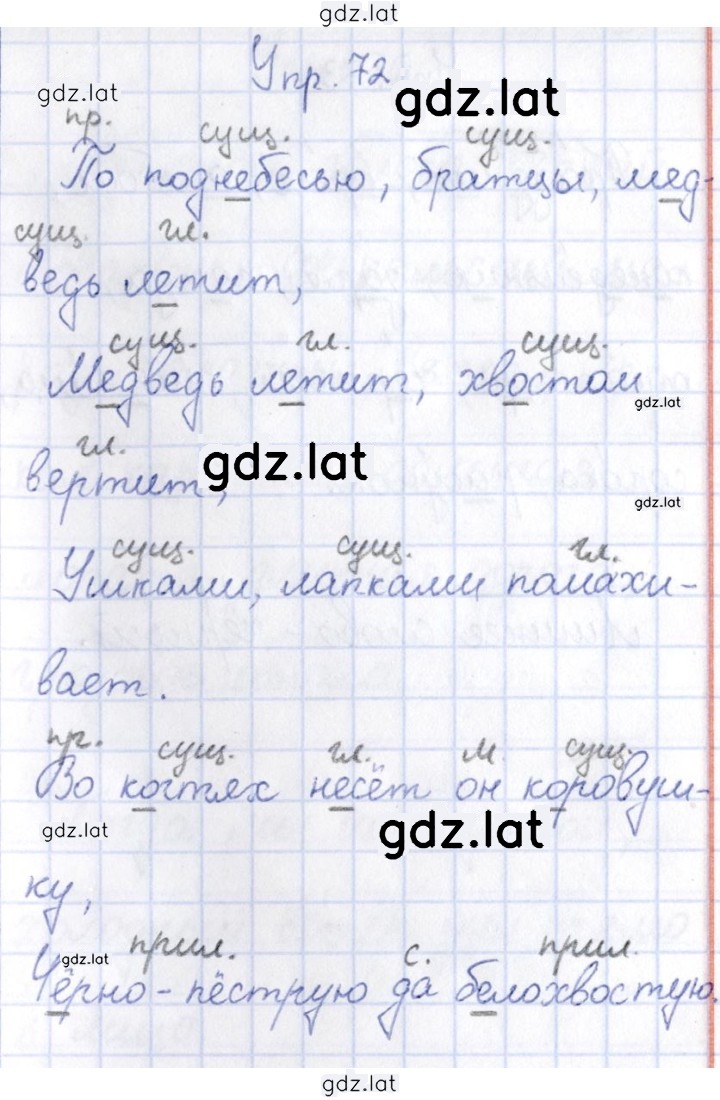 gdz.lat
Упр. 72
gdz.lat
gdz.lat
пр. сущ. сущ.
По поднебесью, братцы, мед-
сущ. гл.
ведь летит,
сущ. гл. сущ.
Медведь летит, хвостом
gdz.lat
гл.
gdz.lat
вертит,
gdz.lat
сущ. сущ. гл.
Ушками, лапками помахи-
вает.
пр. сущ. гл. м. сущ.
Во когтях несёт он коровуш-
gdz.lat
gdz.lat
ку,
gdz.lat
прил. с. прил.
Чёрно-пёструю да белохвостую.
gdz.lat